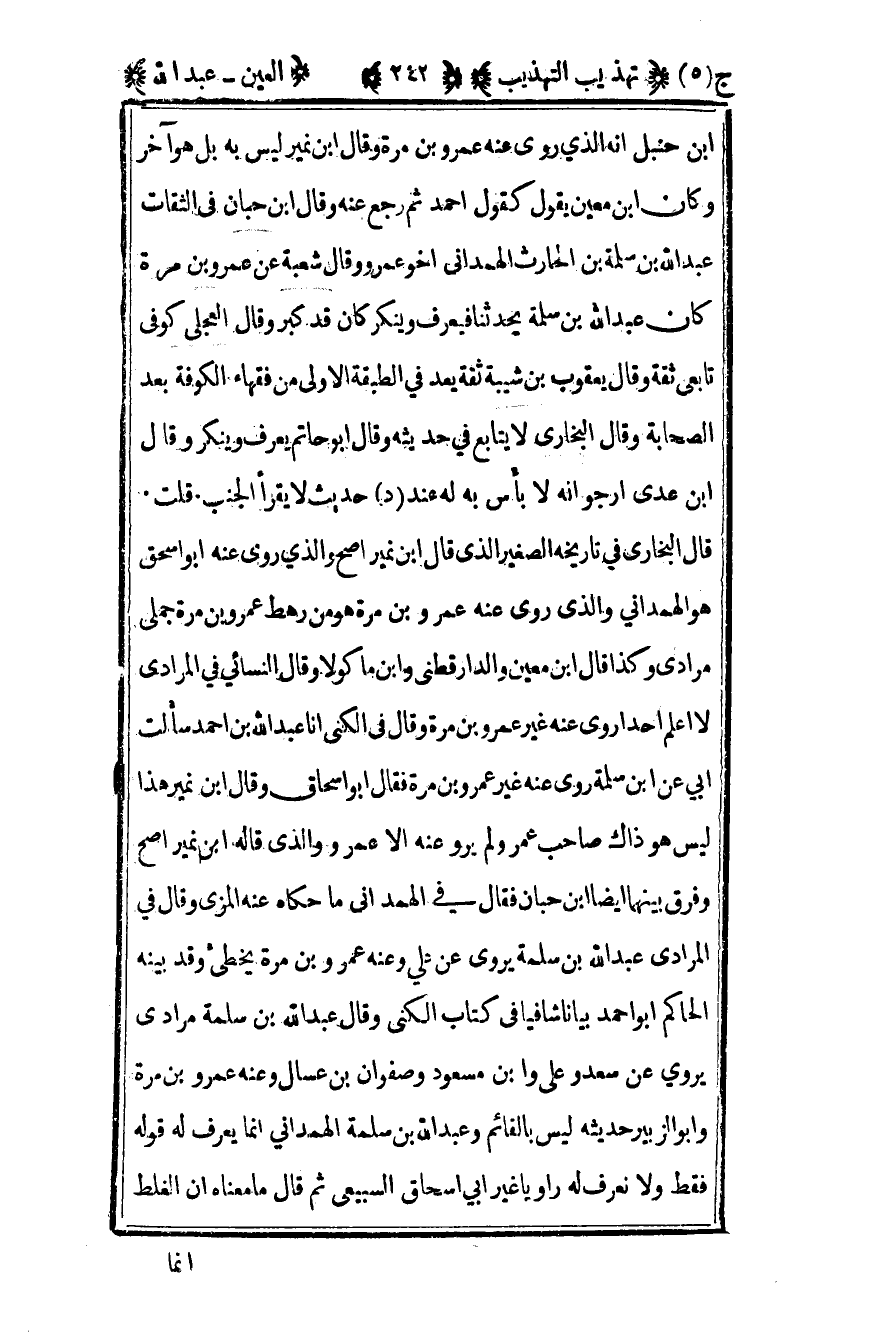 ج (٥) تهذيب التهذيب ٢٤٢ العين - عبد الله
ابن حنبل انه الذي روى عنه عمرو بن مرة وقال ابن نمير ليس به بل هو آخر
وكان ابن معين يقول كقول احمد ثم رجع عنه وقال ابن حبان فى الثقات
عبد الله بن سلمة بن الحارث الهمدانى اخو عمرو وقال شعبة عن عمرو بن مرة
كان عبد الله بن سلمة يحدثنا فيعرف وينكر كان قد كبر وقال العجلى كوفى
تابعى ثقة وقال يعقوب بن شيبة ثقة يعد في الطبقة الاولى من فقهاء الكوفة بعد
الصحابة وقال البخارى لا يتابع في حديثه وقال ابو حاتم يعرف وينكر وقال
ابن عدى ارجو انه لا بأس به له عند (د) حديث لا يقرأ الجنب ٠ قلت ٠
قال البخارى في تاريخه الصغير الذى قال ابن نمير اصح والذي روى عنه ابو اسحق
هو الهمداني والذى روى عنه عمرو بن مرة هو من رهط عمرو بن مرة جملى
مرادى وكذا قال ابن معين والدار قطنى وابن ماكولا وقال النسائي في المرادى
لا اعلم احدا روى عنه غير عمرو بن مرة وقال فى الكنى انا عبد الله بن احمد سألت
ابي عن ابن سلمة روى عنه غير عمرو بن مرة فقال ابو اسحاق وقال ابن نمير هذا
ليس هو ذاك صاحب عمر ولم يرو عنه الا عمرو والذى قاله ابن نمير اصح
وفرق بينهما ايضا ابن حبان فقال في الهمدانى ما حكاه عنه المزى وقال في
المرادى عبد الله بن سلمة يروى عن علي وعنه عمرو بن مرة يخطئ وقد بينه
الحاكم ابو احمد بيانا شافيا فى كتاب الكنى وقال عبد الله بن سلمة مرادى
يروي عن سعد وعلى وابن مسعود وصفوان بن عسال وعنه عمرو بن مرة
وابو الزبير حديثه ليس بالقائم وعبد الله بن سلمة الهمداني انما يعرف له قوله
فقط ولا نعرف له راويا غير ابي اسحاق السبيعى ثم قال ما معناه ان الغلط
انما